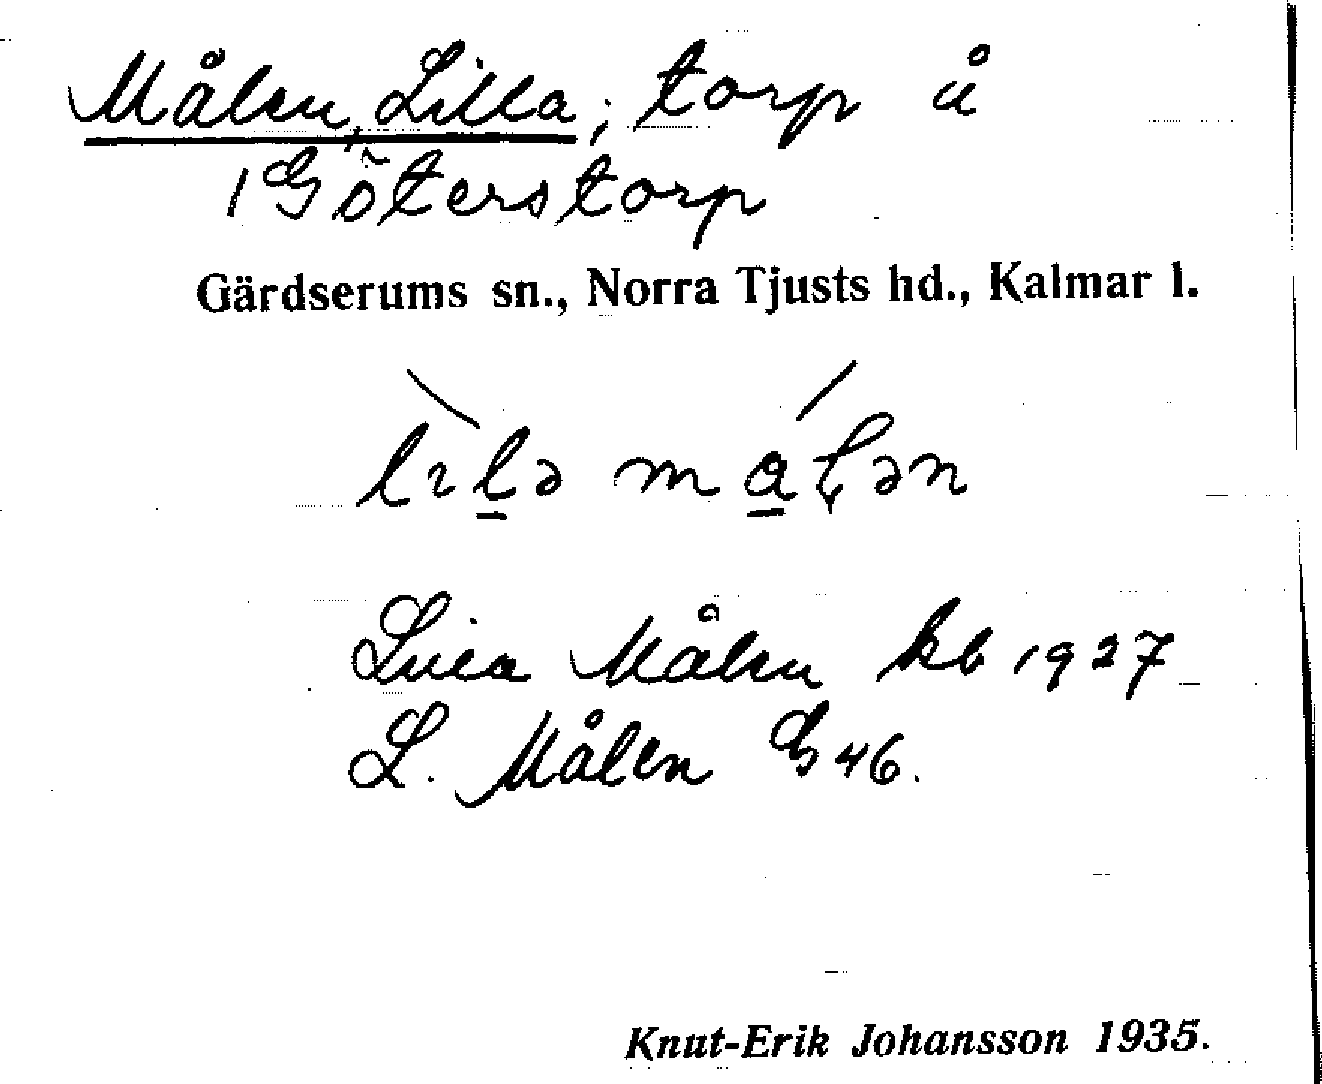 Målen, Lilla; torp å
1 Göterstorp
Gärdserums sn., Norra Tjusts hd., Kalmar l.
Lilla Målen kb 1927
L. Målen G 46.
Knut-Erik Johansson 1935.